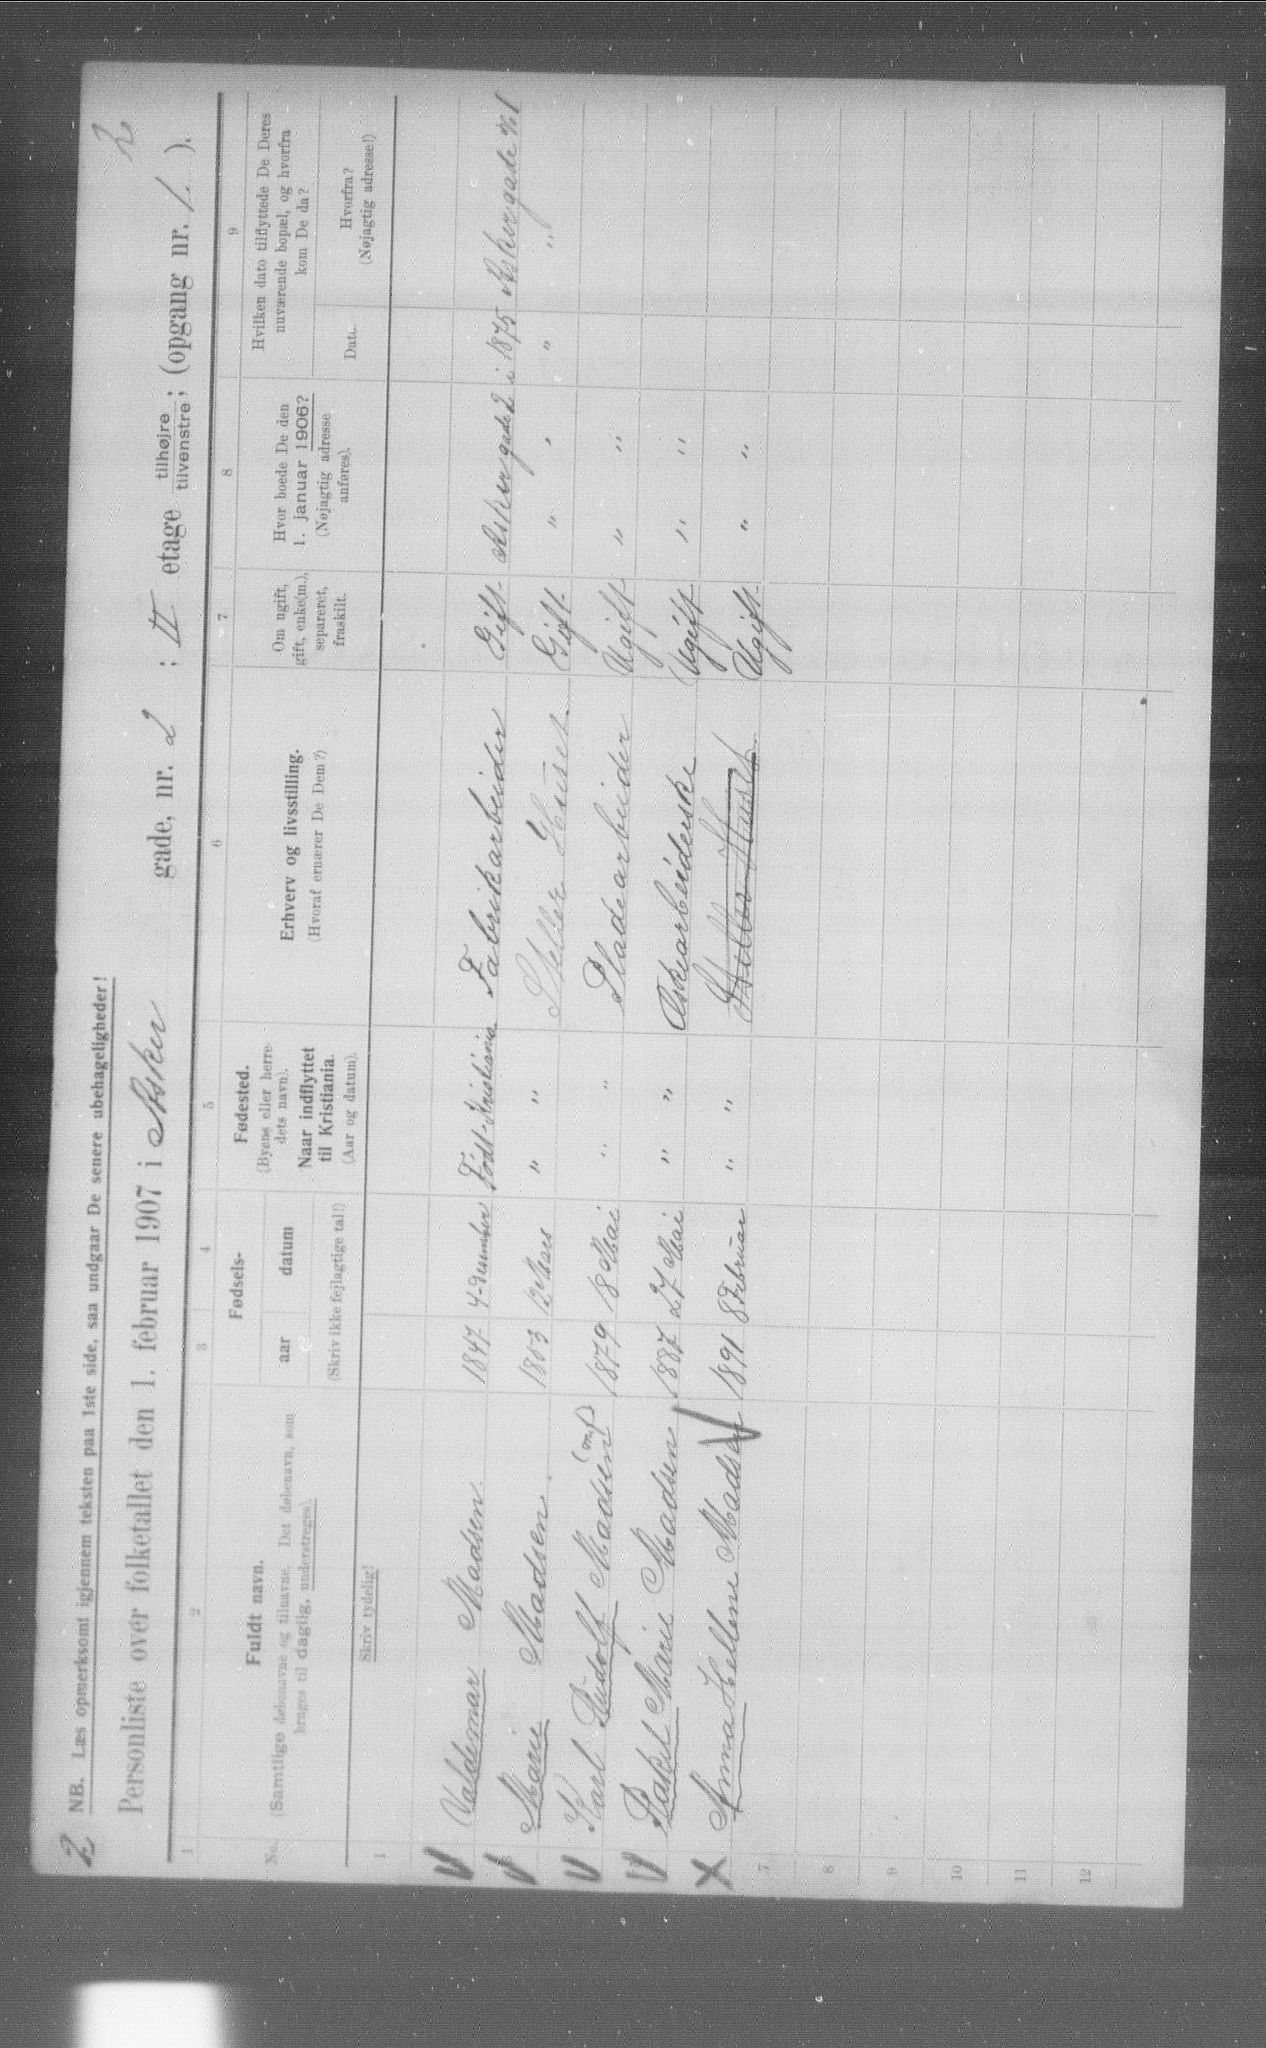 2 NB. Læs opmerksomt igjennem teksten paa 1ste side, saa undgaar De senere ubehageligheder!
2
Personliste over folketallet den 1. februar 1907 i Asker gade, nr. 2 ; II etage tilhøjre / tilvenstre; (opgang nr. 1. ).
1 2 3 4 5 6 7 8 9
No. Fuldt navn. (Samtlige døbenavne og tilnavne. Det døbenavn, som bruges til daglig, understreges). Fødsels- aar datum (Skriv ikke fejlagtige tal!) Fødested. (Byens eller herredets navn). Naar indflyttet til Kristiania. (Aar og datum). Erhverv og livsstilling. (Hvoraf ernærer De Dem?) Om ugift, gift, enke(m.), separeret, fraskilt. Hvor boede De den 1. januar 1906? (Nøjagtig adresse anføres). Hvilken dato tilflyttede De Deres nuværende bopæl, og hvorfra kom De da? Dato. Hvorfra? (Nøjagtig adresse!)
1 Skriv tydelig!
V Valdemar Madsen 1847 4 desember Född-Kristiania Fabrikarbeider Gift Askergade 2 i 1875 Askergade № 1
V Marie Madsen 1853 12 Mars " " Steller Huset. Gift " " " "
V Karl Rudolf Madsen 1879 18 Mai " " Pladearbeider Ugift " "
V Rakel Marie Madsen 1887 27 Mai " " Æskearbeiderske Ugift " "
X Anna Hellene Madsen 1891 8 Februar " " Steller Huset Ugift " "
7
8
9
10
11
12